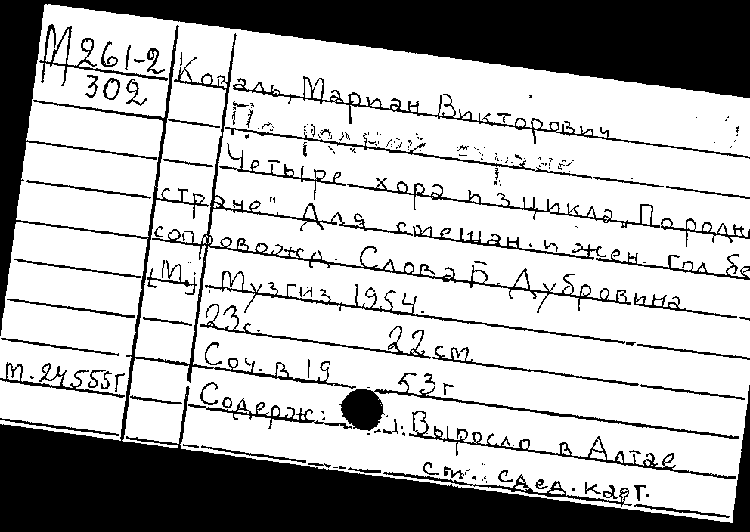 М 261-2
302
Коваль, Мариан Викторович
По родной стране
Четыре хора из цикла „По родно
стране". Для смешан. и жен. гол. бе
сопровожд. Слова Б. Дубровина
[М.] Музгиз, 1954.
23с. 22 см
Соч. в 19 53 г
т. 24555г
Содерж: 1. Выросло в Алтае
см. след. карт.